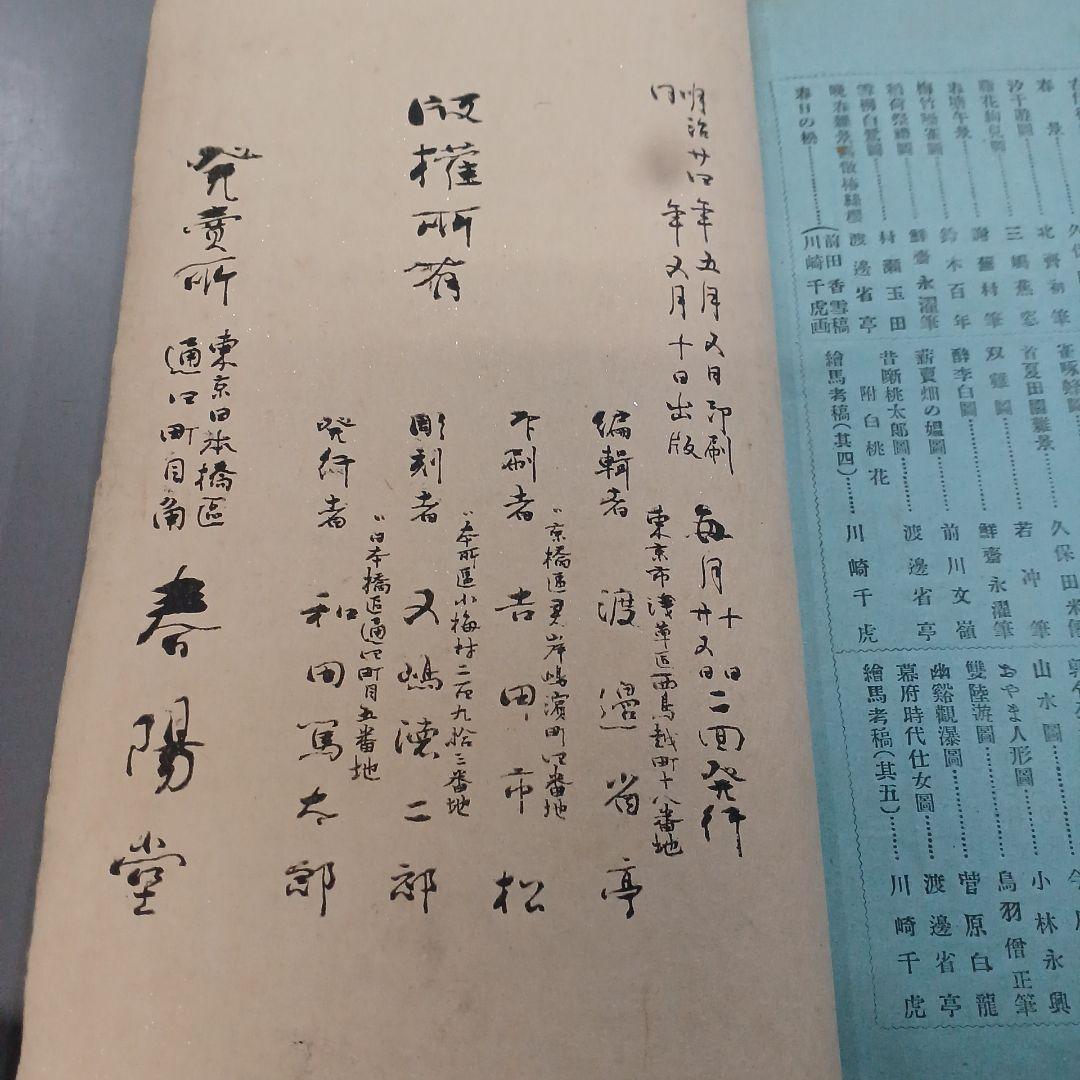 春景……久保
汐干遊圖……北齊初筆
雛花狗兒圖……三嶋蕉窓
午景……謝蕪村筆
梅竹雀圖……鈴木百年
稻荷祭禮圖……鮮齋永濯筆
雪柳白鷺圖……村瀬玉田
晩春雜景散椿絲櫻 渡邊省亭
春日の松……(前田香雪稿
川崎千虎画)
雀啄蜂圖
首夏田園雜景 久保田米僊
双雞圖……若冲筆
醉李白圖……鮮齋永濯筆
薪賣畑の媼圖……前川文嶺
昔噺桃太郎圖……渡邊省亭
附白桃花
繪馬考稿(其四)……川崎千虎
山水圖
おやま人形圖……小林永興
雙陸遊圖……鳥羽僧正筆
幽谿觀瀑圖……菅原白龍
幕府時代仕女圖……渡邊省亭
繪馬考稿(其五)……川崎千虎
明治廿四年五月五日印刷 毎月十日廿五日二回発行
同年五月十日出版
東京市浅草区西鳥越町十八番地
編輯者 渡邉省亭
〃京橋區霊岸嶋濱町四番地
印刷者 吉田市松
〃本所區小梅村二百九拾三番地
彫刻者 五嶋徳二郎
〃日本橋区通四町目五番地
発行者 和田篤太郎
版權所有
東京日本橋區
通四町目角
発賣所 春陽堂